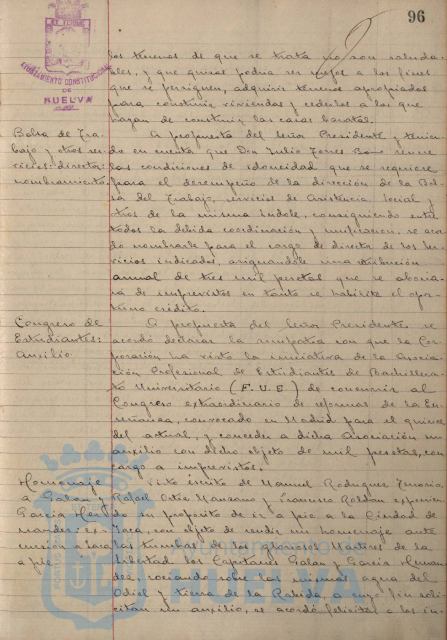 96
AYUNTAMIENTO CONSTITUCIONAL
DE
HUELVA
los terrenos de que se trata no son saluda-
bles, y que quizas podria ser mejor a los fines
que se persiguen, adquirir terrenos apropiados
para construir viviendas y cederlos a los que
hayan de construir las casas baratas.
Bolsa de Tra-
bajo y otros ser-
vicios: director:
nombramiento.
A propuesta del Señor Presidente y tenien-
do en cuenta que Don Julio reune
las condiciones de idoneidad que se requiere
para el desempeño de la dirección de la Bol
sa del Trabajo, servicios de Asistencia Social y
otros de la misma indole, consiguiendo entre
todos la debida coordinación y unificación, se acor
dó nombrarle para el cargo de director de los Ser
vicios indicados, asignandole una retribución
annual de tres mil pesetas que se abona-
rá de imprevistos en tanto se habilite el opor-
tuno crédito.
Congreso de
Estudiantes:
Auxilio
A propuesta del Señor Presidente se
acordó declarar la simpatia con que la Cor
poración ha visto la iniciativa de la Asocia-
ción Profesional de Estudiantes de Bachillera-
to Universitario (F.U.E) de concurrir al
Congreso extraordinario de reformas de la En-
señanza, convocado en Madrid para el quince
del actual, y conceder a dicha Asociación un
auxilio con dicho objeto de mil pesetas, con
cargo a imprevistos.
Homenaje
a Galan y
Garcia Her-
nandez: ex-
cursión a Jaca
a pie
Visto escrito de Manuel Rodriguez
Rafael Ortiz Manzano y Francisco Roldan exponien
do su proposito de ir a pie a la Ciudad de
Jaca con objeto de rendir un homenaje ante
las tumbas de los gloriosos Martires de la
Libertad los Capitanes Galan y Garcia Hernan
dez, rociando sobre las mismas agua del
Odiel y tierra de la Rabida, a cuyo fin soli-
citan un auxilio, se acordó felicitar a los in-
Ayuntamiento
HUELVA